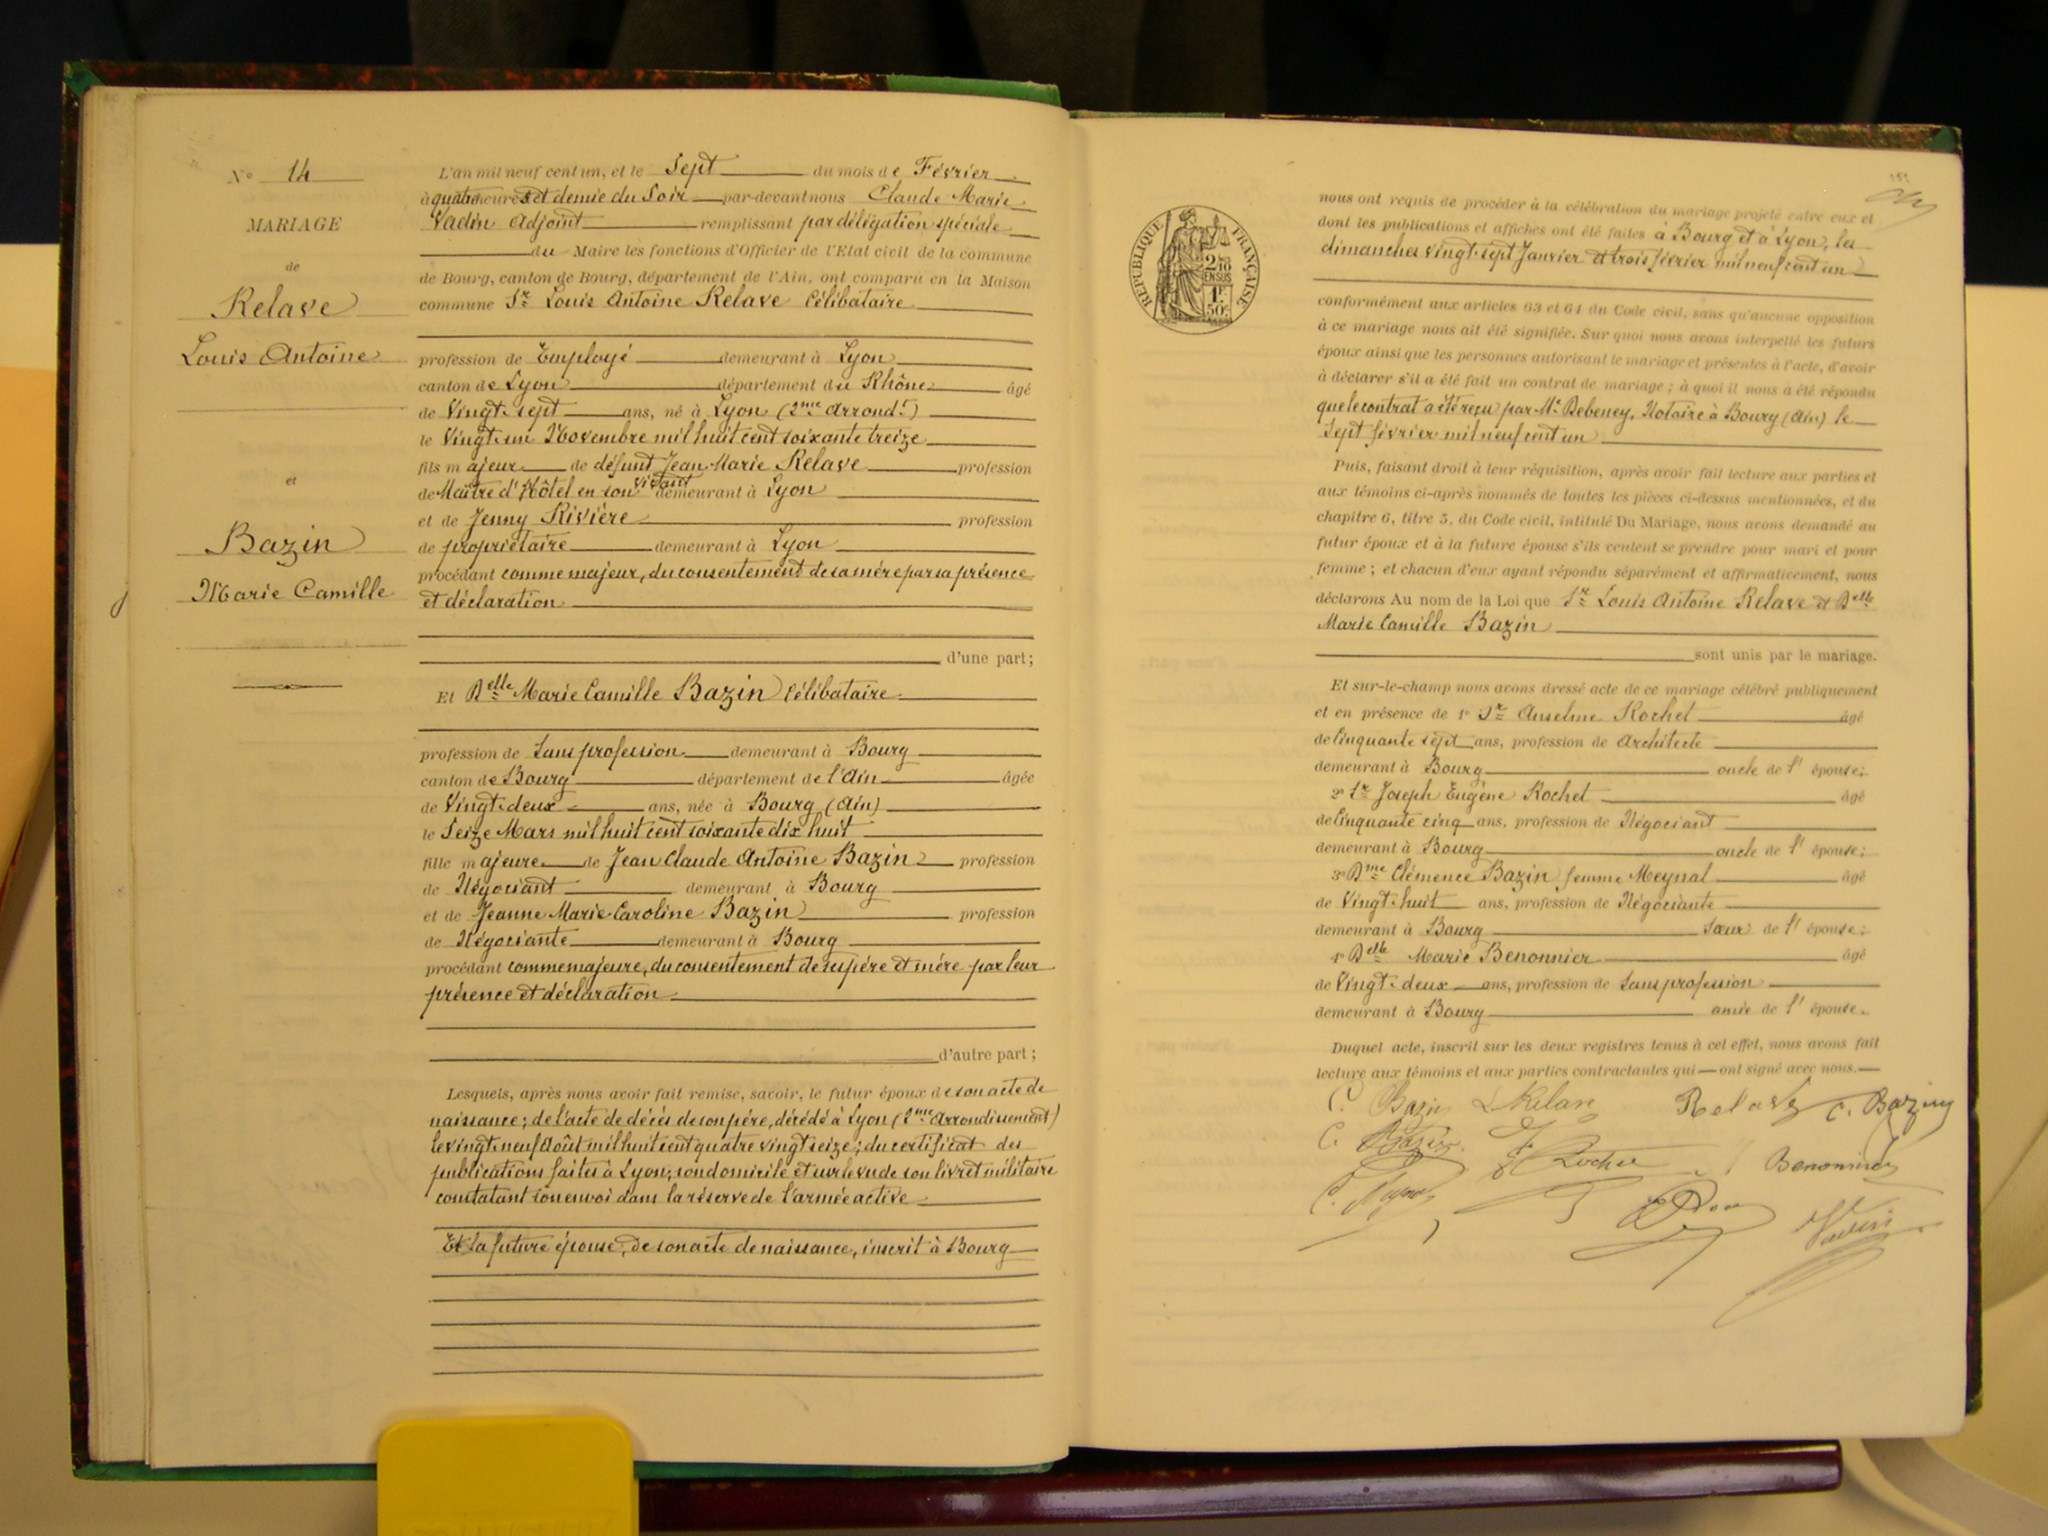 N° 14
MARIAGE
de
Relave
Louis Antoine
et
Bazin
Marie Camille
L'an mil neuf cent un, et le Sept du mois de Février
à quatre heures et demie du Soir par-devant nous Claude Marie
Vadin Adjoint remplissant par délégation spéciale
du Maire les fonctions d'Officier de l'Etat civil de la commune
de Bourg, canton de Bourg, département de l'Ain, ont comparu en la Maison
commune Sr Louis Antoine Relave Célibataire
profession de Employé demeurant à Lyon
canton de Lyon département du Rhône âgé
de Vingt-sept ans, né à Lyon (2me Arrondt)
le Vingt-un Novembre mil huit cent soixante treize
fils majeur de défunt Jean Marie Relave profession
de Maître d'Hôtel en son vivant demeurant à Lyon
et de Jenny Rivière profession
de propriétaire demeurant à Lyon
procédant comme majeur, du consentement de sa mère par sa présence
et déclaration
d'une part;
Et Delle Marie Camille Bazin Célibataire
profession de Sans profession demeurant à Bourg
canton de Bourg département de l'Ain âgée
de Vingt-deux ans, née à Bourg (Ain)
le Seize Mars mil huit cent soixante dix huit
fille majeure de Jean Claude Antoine Bazin profession
de Négociant demeurant à Bourg
et de Jeanne Marie Caroline Bazin profession
de Négociante demeurant à Bourg
procédant comme majeure, du consentement de ses père et mère par leur
présence et déclaration
d'autre part;
Lesquels, après nous avoir fait remise, savoir, le futur époux de son acte de
naissance; de l'acte de décès de son père, décédé à Lyon (2me Arrondissement)
le vingt-neuf Août mil huit cent quatre vingt seize; du certificat des
publications faites à Lyon, son domicile et sur le vu de son livret militaire
constatant son envoi dans la réserve de l'armée active
Et la future épouse, de son acte de naissance, inscrit à Bourg
REPUBLIQUE FRANÇAISE
2/10
EN SUS
1F
50c
nous ont requis de procéder à la célébration du mariage projeté entre eux et
dont les publications et affiches ont été faites à Bourg et à Lyon, les
dimanches vingt-sept Janvier et trois février mil neuf cent un
conformément aux articles 63 et 64 du Code civil, sans qu'aucune opposition
à ce mariage nous ait été signifiée. Sur quoi nous avons interpellé les futurs
époux ainsi que les personnes autorisant le mariage et présentes à l'acte, d'avoir
à déclarer s'il a été fait un contrat de mariage; à quoi il nous a été répondu
que le contrat a été reçu par Me Debeney, Notaire à Bourg (Ain) le
Sept février mil neuf cent un
Puis, faisant droit à leur réquisition, après avoir fait lecture aux parties et
aux témoins ci-après nommés de toutes les pièces ci-dessus mentionnées, et du
chapitre 6, titre 5, du Code civil, intitulé Du Mariage, nous avons demandé au
futur époux et à la future épouse s'ils veulent se prendre pour mari et pour
femme; et chacun d'eux ayant répondu séparément et affirmativement, nous
déclarons Au nom de la Loi que Sr Louis Antoine Relave et Delle
Marie Camille Bazin
sont unis par le mariage.
Et sur-le-champ nous avons dressé acte de ce mariage célébré publiquement
et en présence de 1° Sr Anselme Rochet âgé
de Cinquante sept ans, profession de Architecte
demeurant à Bourg oncle de l'épouse;
2° Sr Joseph Eugène Rochet âgé
de Cinquante cinq ans, profession de Négociant
demeurant à Bourg oncle de l'épouse;
3° Dme Clémence Bazin femme Meynal âgé
de Vingt-huit ans, profession de Négociante
demeurant à Bourg Sœur de l'épouse;
4° Delle Marie Benonnier âgé
de Vingt-deux ans, profession de Sans profession
demeurant à Bourg amie de l'épouse.
Duquel acte, inscrit sur les deux registres tenus à cet effet, nous avons fait
lecture aux témoins et aux parties contractantes qui ont signé avec nous.
C. Bazin L Relave Relave C. Bazin
C. Bazin Rochet Benonnier
Vadin